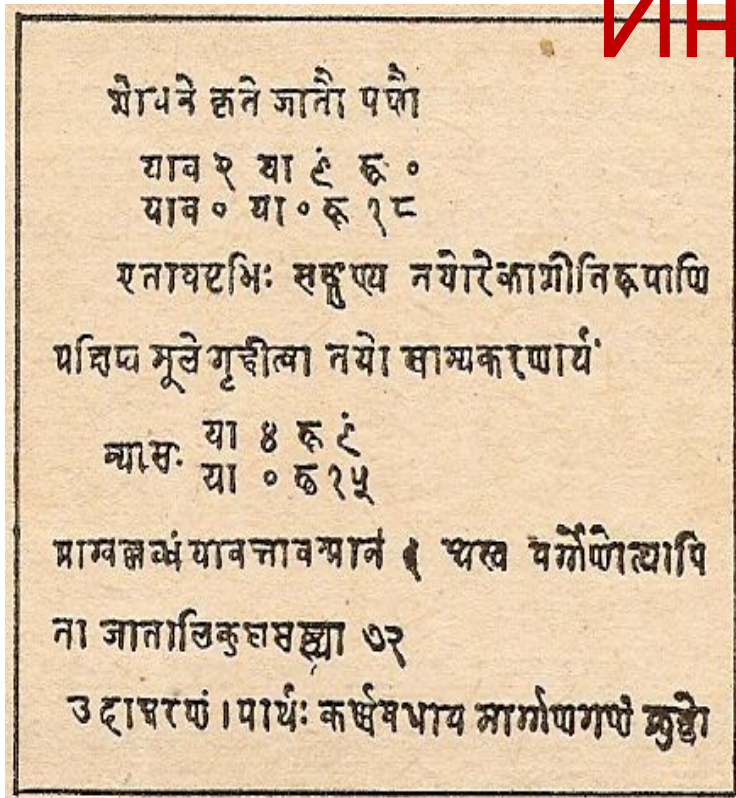 ИН
शोधने कृते जातौ पक्षौ
याव २ या ९ं रू ०
याव ० या ० रू १८
एतावष्टभिः सङ्गुण्य तयोरेकाशीतिरूपाणि
प्रक्षिप्य मूले गृहीत्वा तयो साम्यकरणार्थं
न्यासः या ४ रू ९ं
या ० रू १५
प्राग्वल्लब्धं यावत्तावन्मानं अस्य वर्गेणोत्थापि
ता जातालिकुलसङ्ख्या ७२
उदाहरणं । पार्थः कर्णवधाय मार्गणगणं क्रुद्धो